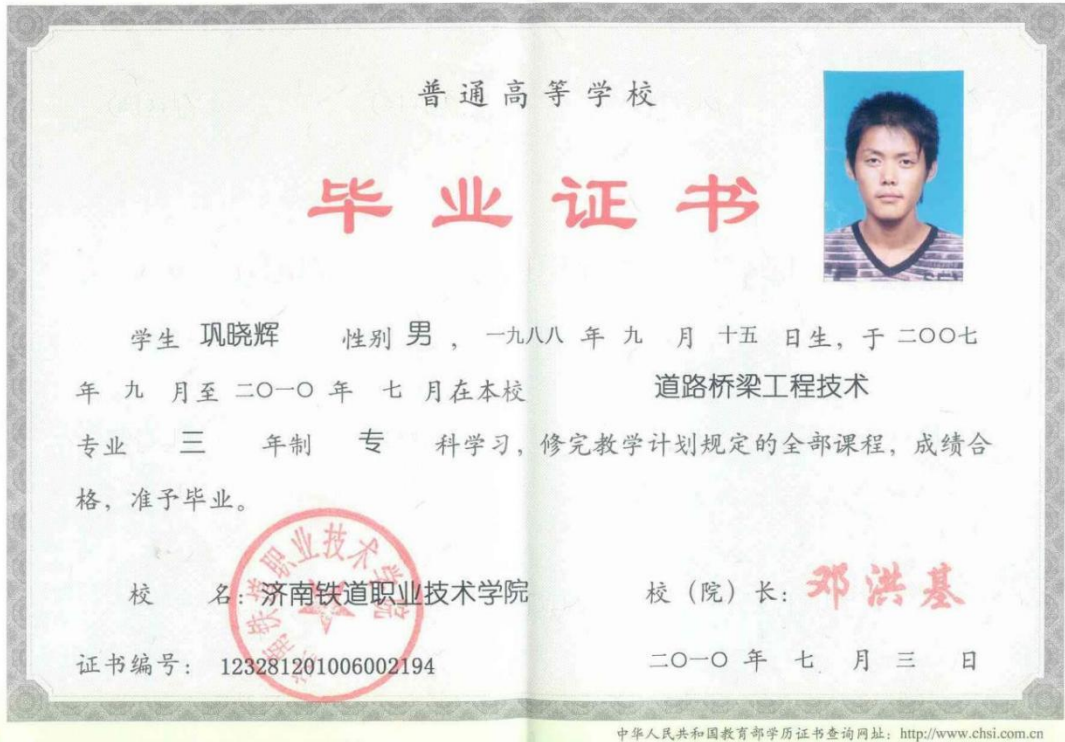 普通高等学校
毕业证书
学生 巩晓辉 性别 男 ，一九八八 年 九 月 十五 日生，于 二〇〇七
年 九 月至 二〇一〇 年 七 月在本校 道路桥梁工程技术
专业 三 年制 专 科学习，修完教学计划规定的全部课程，成绩合
格，准予毕业。
济南铁道职业技术学院
校 名：济南铁道职业技术学院 校（院）长：邓洪基
证书编号： 123281201006002194 二〇一〇 年 七 月 三 日
中华人民共和国教育部学历证书查询网址：http://www.chsi.com.cn